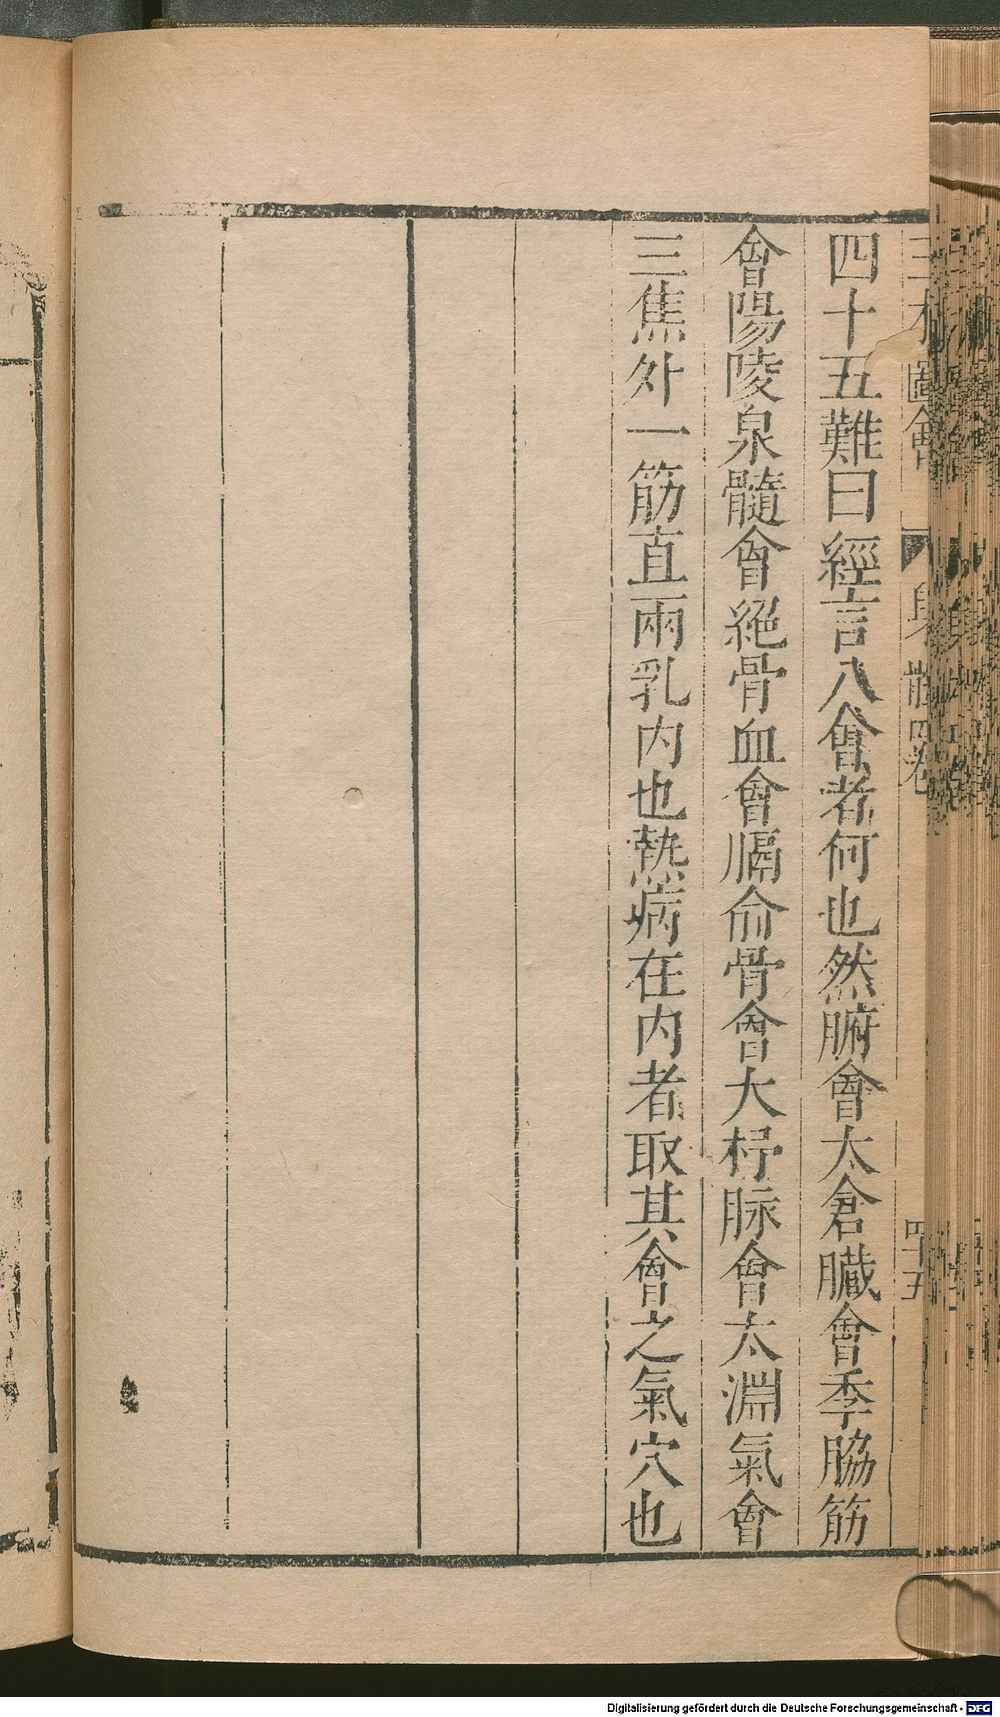 三才圖會 身體四卷 四十五
四十五難曰經言八會者何也然腑會太倉臟會季脇筋
會陽陵泉髓會絕骨血會膈俞骨會大杼脉會太淵氣會
三焦外一筋直兩乳内也熱病在内者取其會之氣穴也
Digitalisierung gefördert durch die Deutsche Forschungsgemeinschaft - DFG